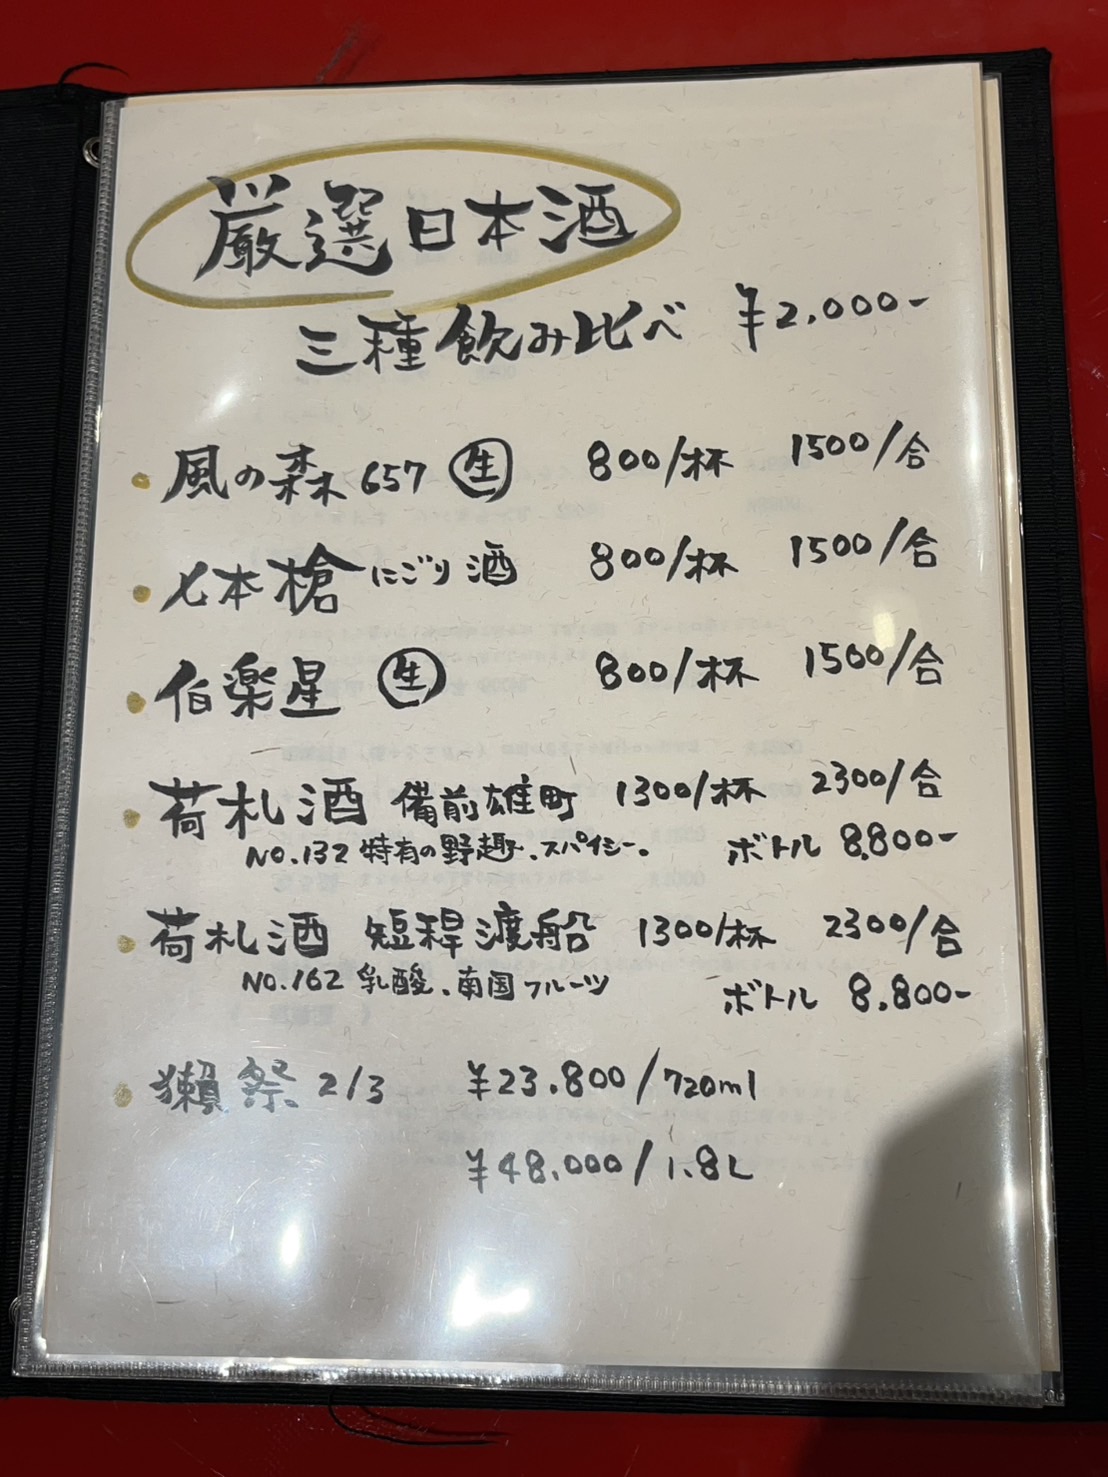 厳選日本酒
三種飲み比べ ¥2,000-
・風の森657 ㊤生 800/杯 1500/合
・七本槍 にごり酒 800/杯 1500/合
・伯楽星 生 800/杯 1500/合
・荷札酒 備前雄町 1300/杯 2300/合
NO.132 特有の野趣、スパイシー。 ボトル 8,800-
・荷札酒 短稈渡船 1300/杯 2300/合
NO.162 乳酸、南国フルーツ ボトル 8,800-
・獺祭 2/3 ¥23,800/720ml
¥48,000/1.8L